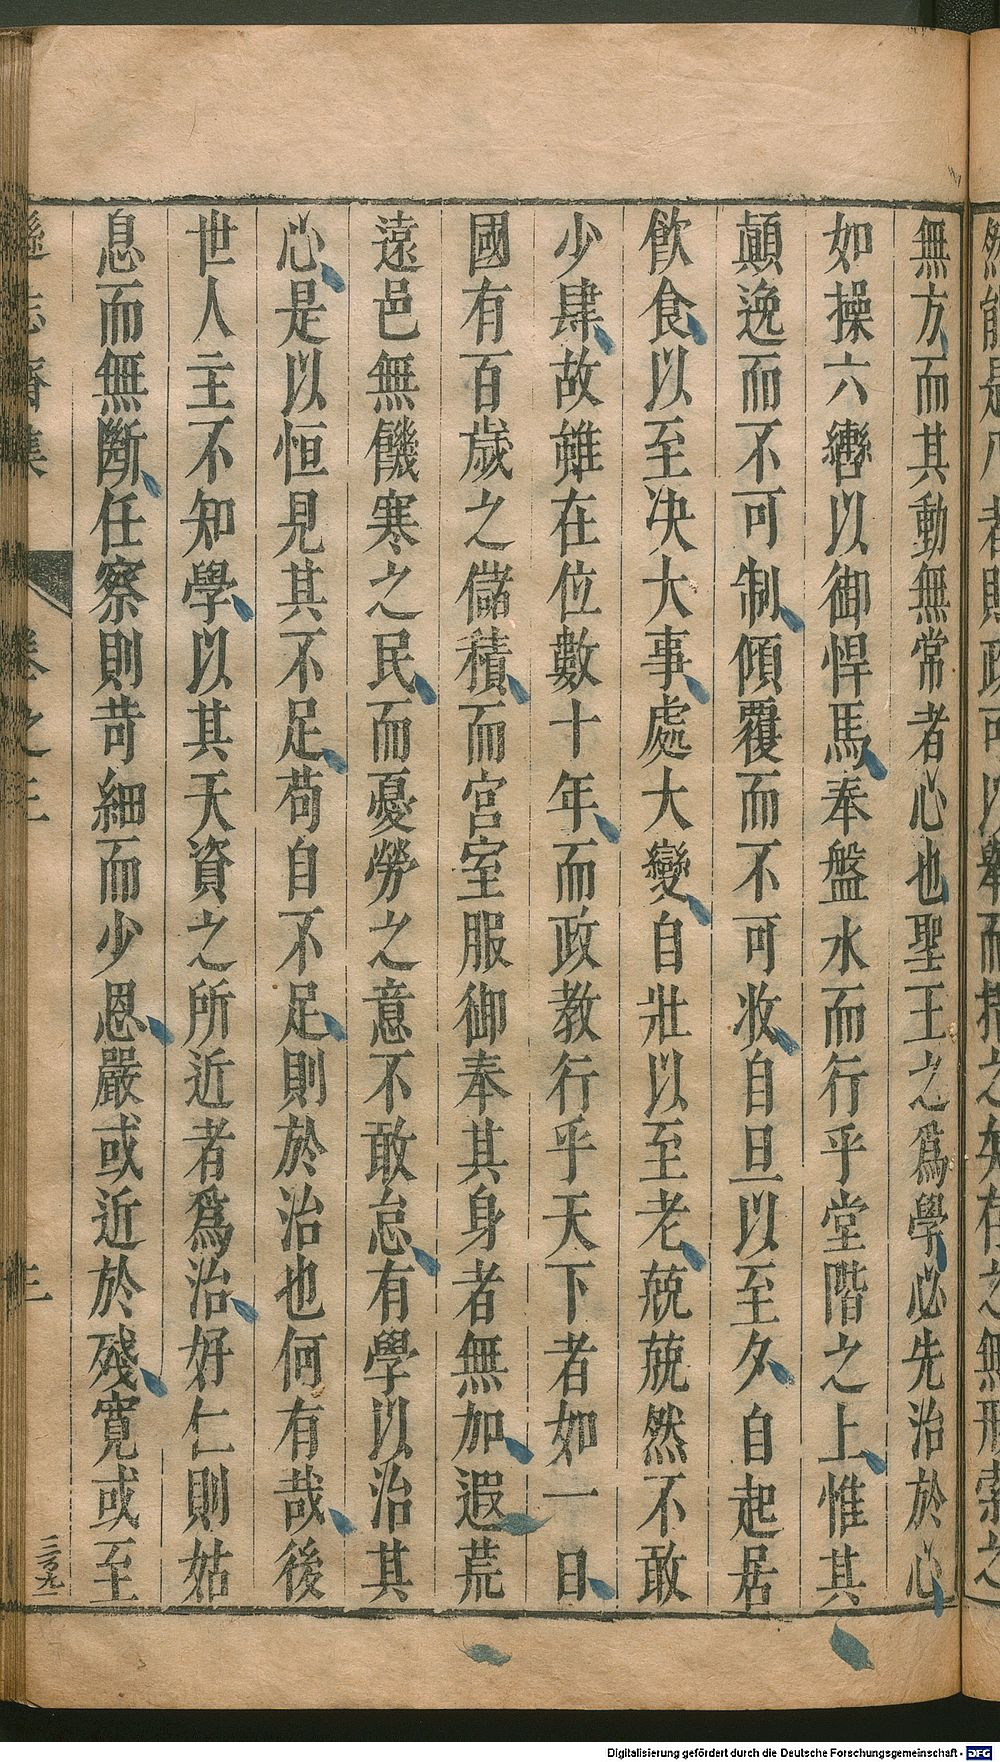 無方而其動無常者心也聖王之爲學必先治於心
如操六轡以御悍馬奉盤水而行乎堂階之上惟其
顛逸而不可制傾覆而不可收自旦以至夕自起居
飲食以至决大事處大變自壯以至老兢兢然不敢
少肆故雖在位數十年而政教行乎天下者如一日
國有百歲之儲積而宮室服御奉其身者無加遐荒
遠邑無饑寒之民而憂勞之意不敢怠有學以治其
心是以恒見其不足苟自不足則於治也何有哉後
世人主不知學以其天資之所近者爲治好仁則姑
息而無斷任察則苛細而少恩嚴或近於殘寬或至
遜志齋集
卷之三
三
二百九
Digitalisierung gefördert durch die Deutsche Forschungsgemeinschaft - DFG